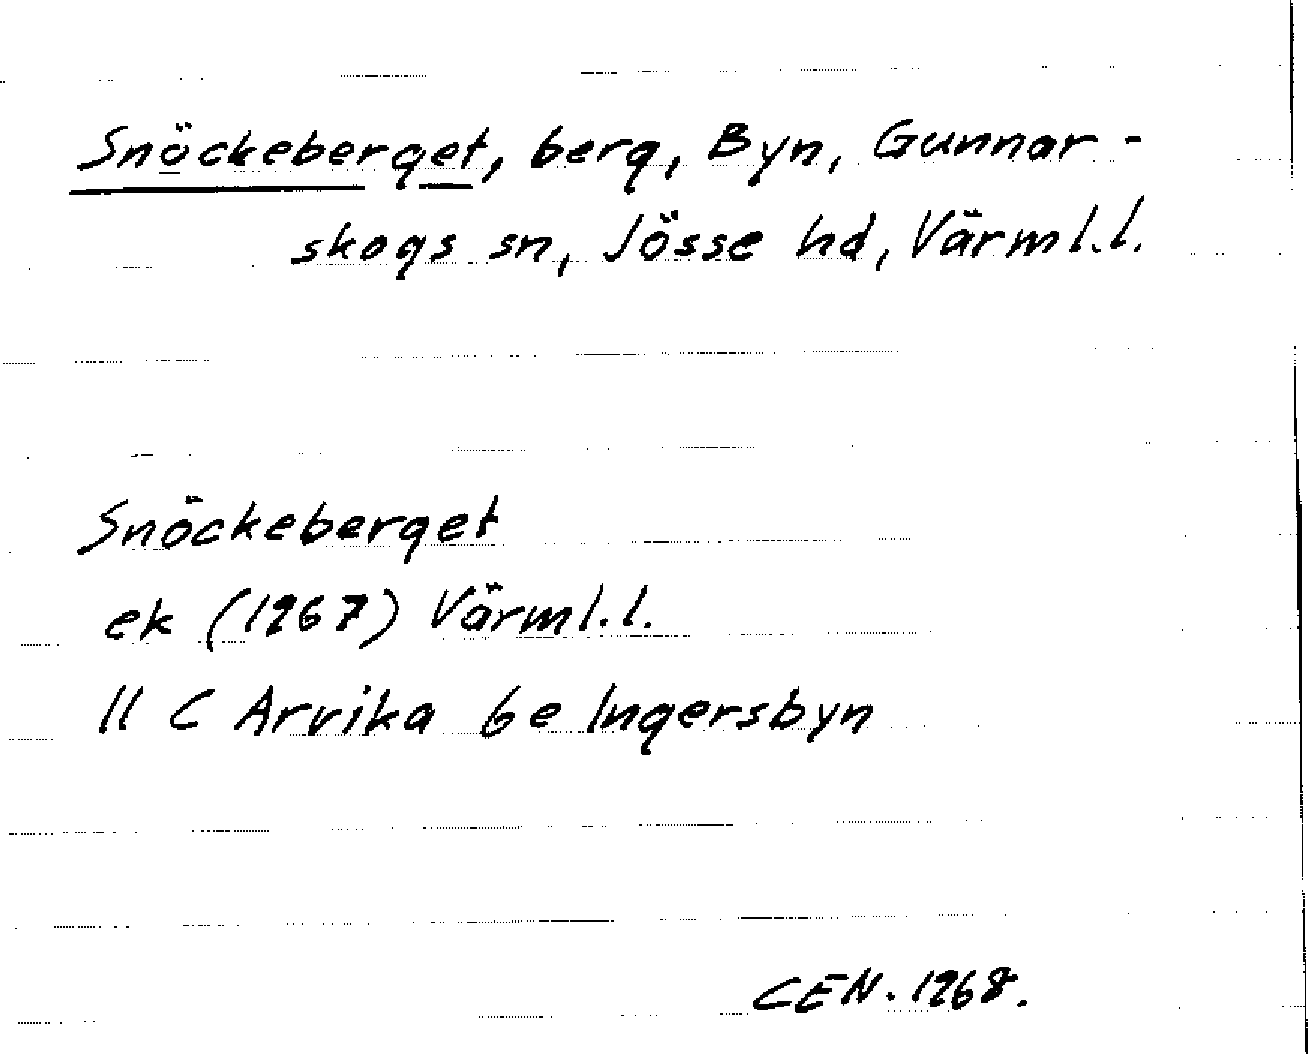 Snöckeberget, berg, Byn, Gunnar-
skogs sn, Jösse hd, Värml.l.
Snöckeberget
ek (1967) Värml.l.
11 C Arvika 6e Ingersbyn
CEN. 1968.